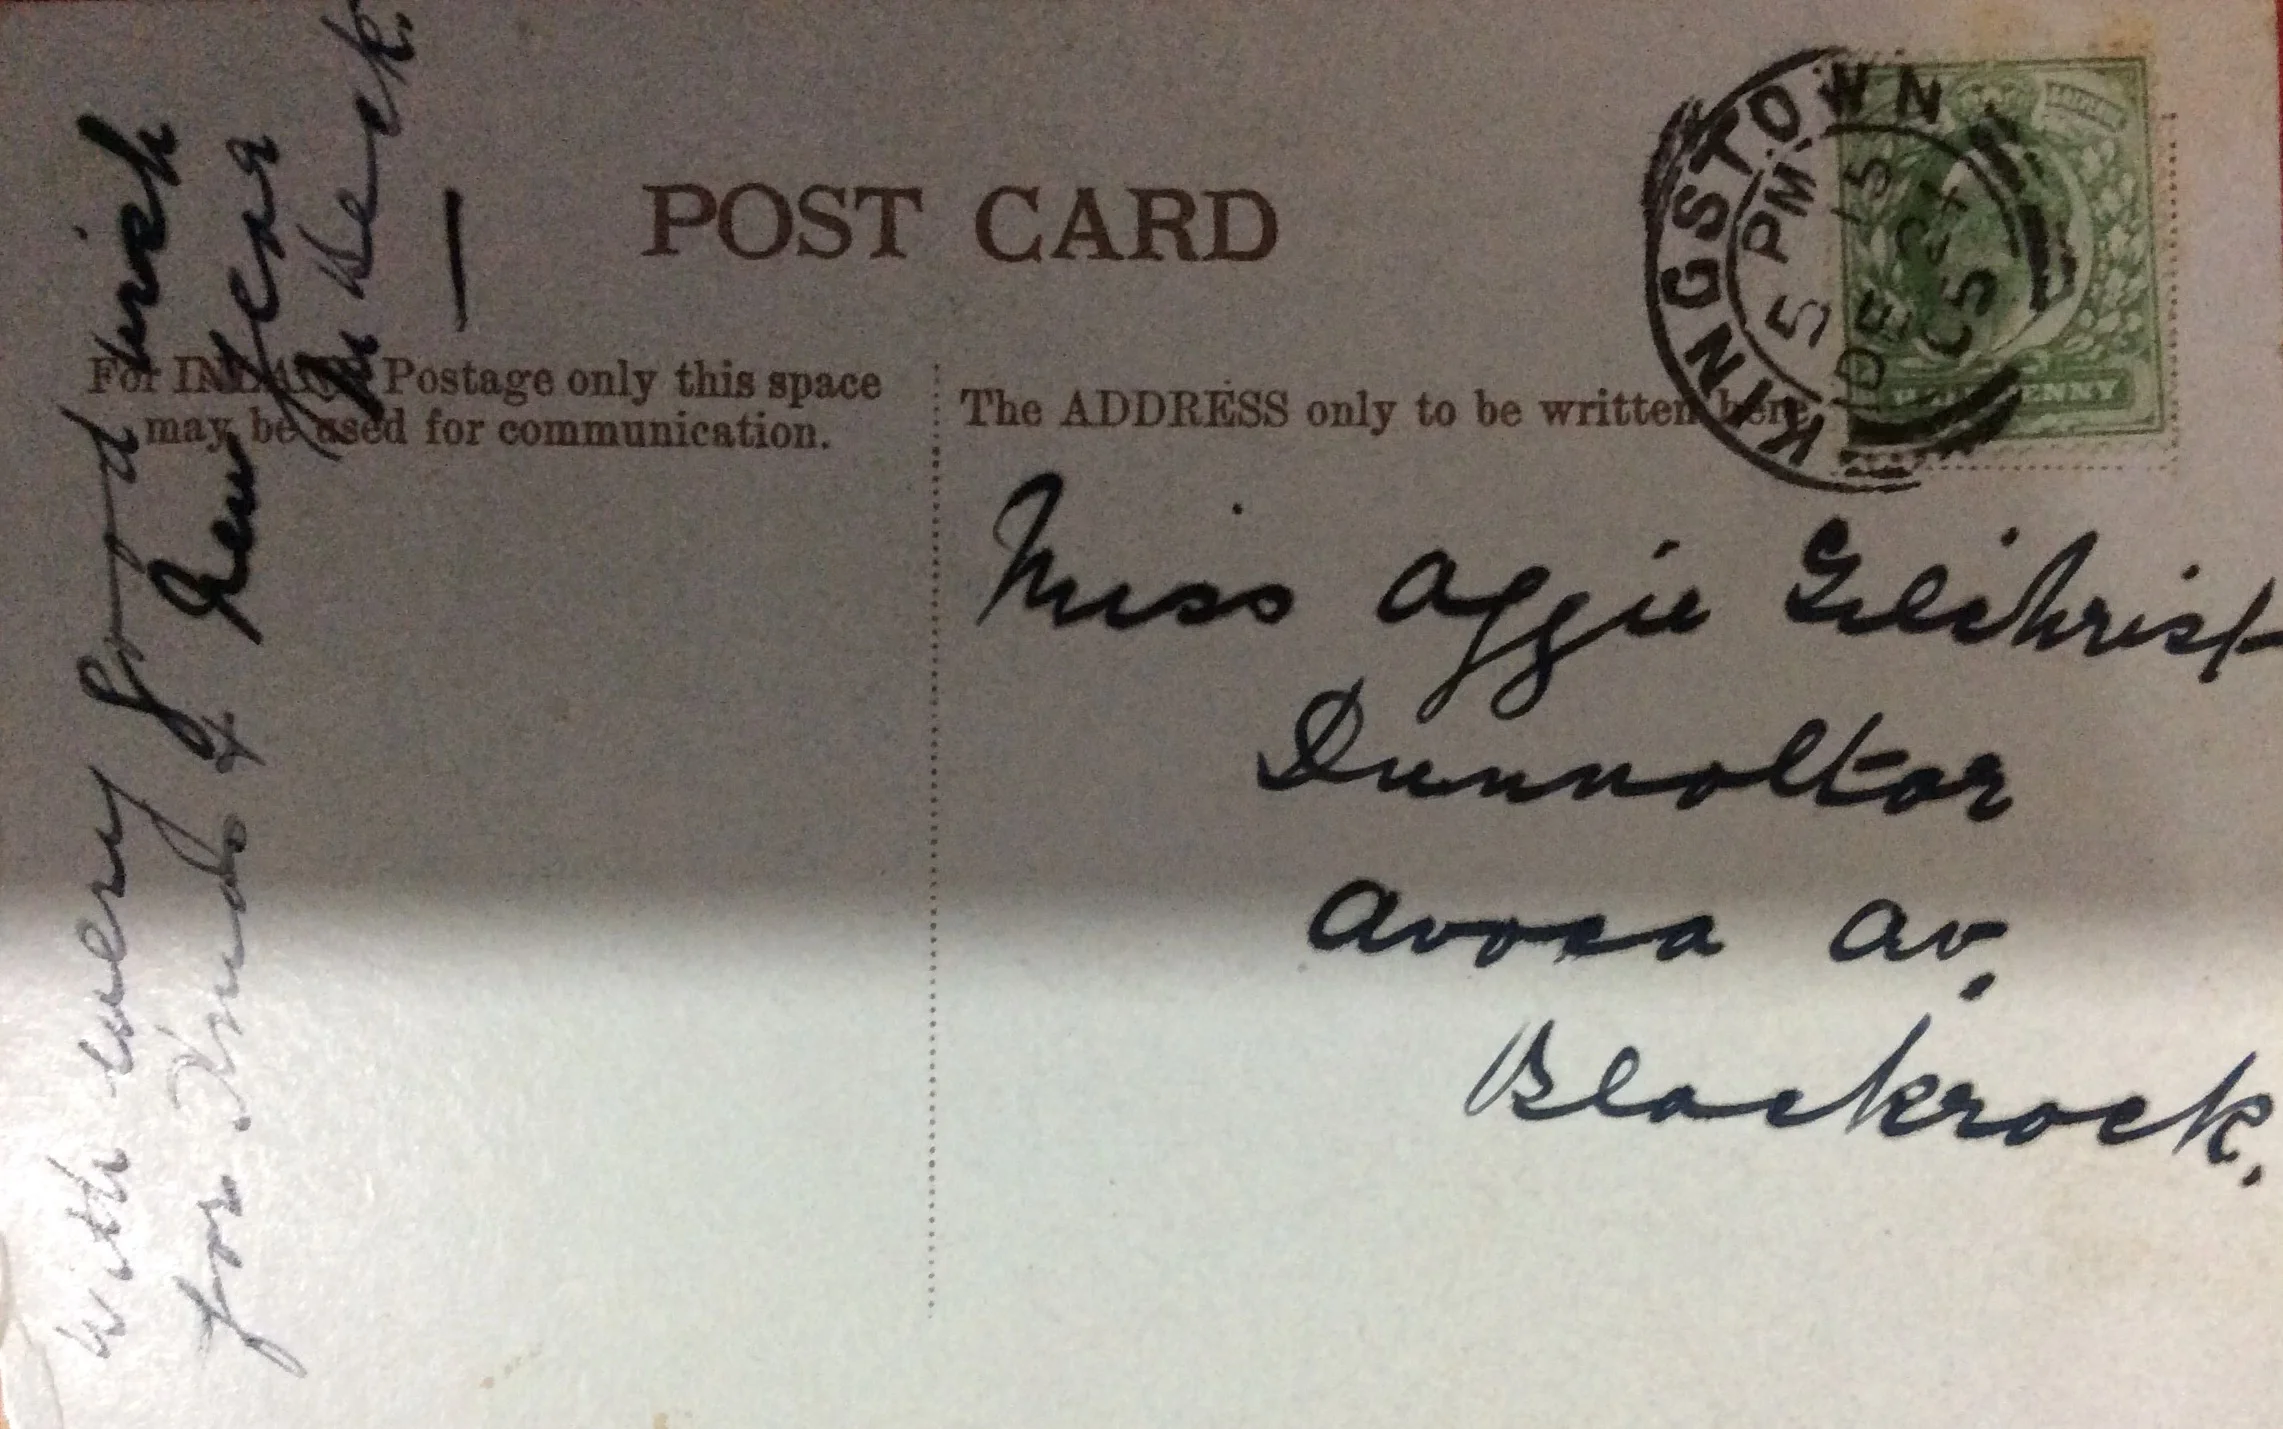 POST CARD
For INLAND Postage only this space
may be used for communication.
The ADDRESS only to be written here.
KINGSTOWN
5 15 PM
DE 24
05
HALFPENNY
Miss Aggie Gilchrist
Dunnoltar
Avoca Av.
Blackrock.
With every good wish
for Xmas & New Year